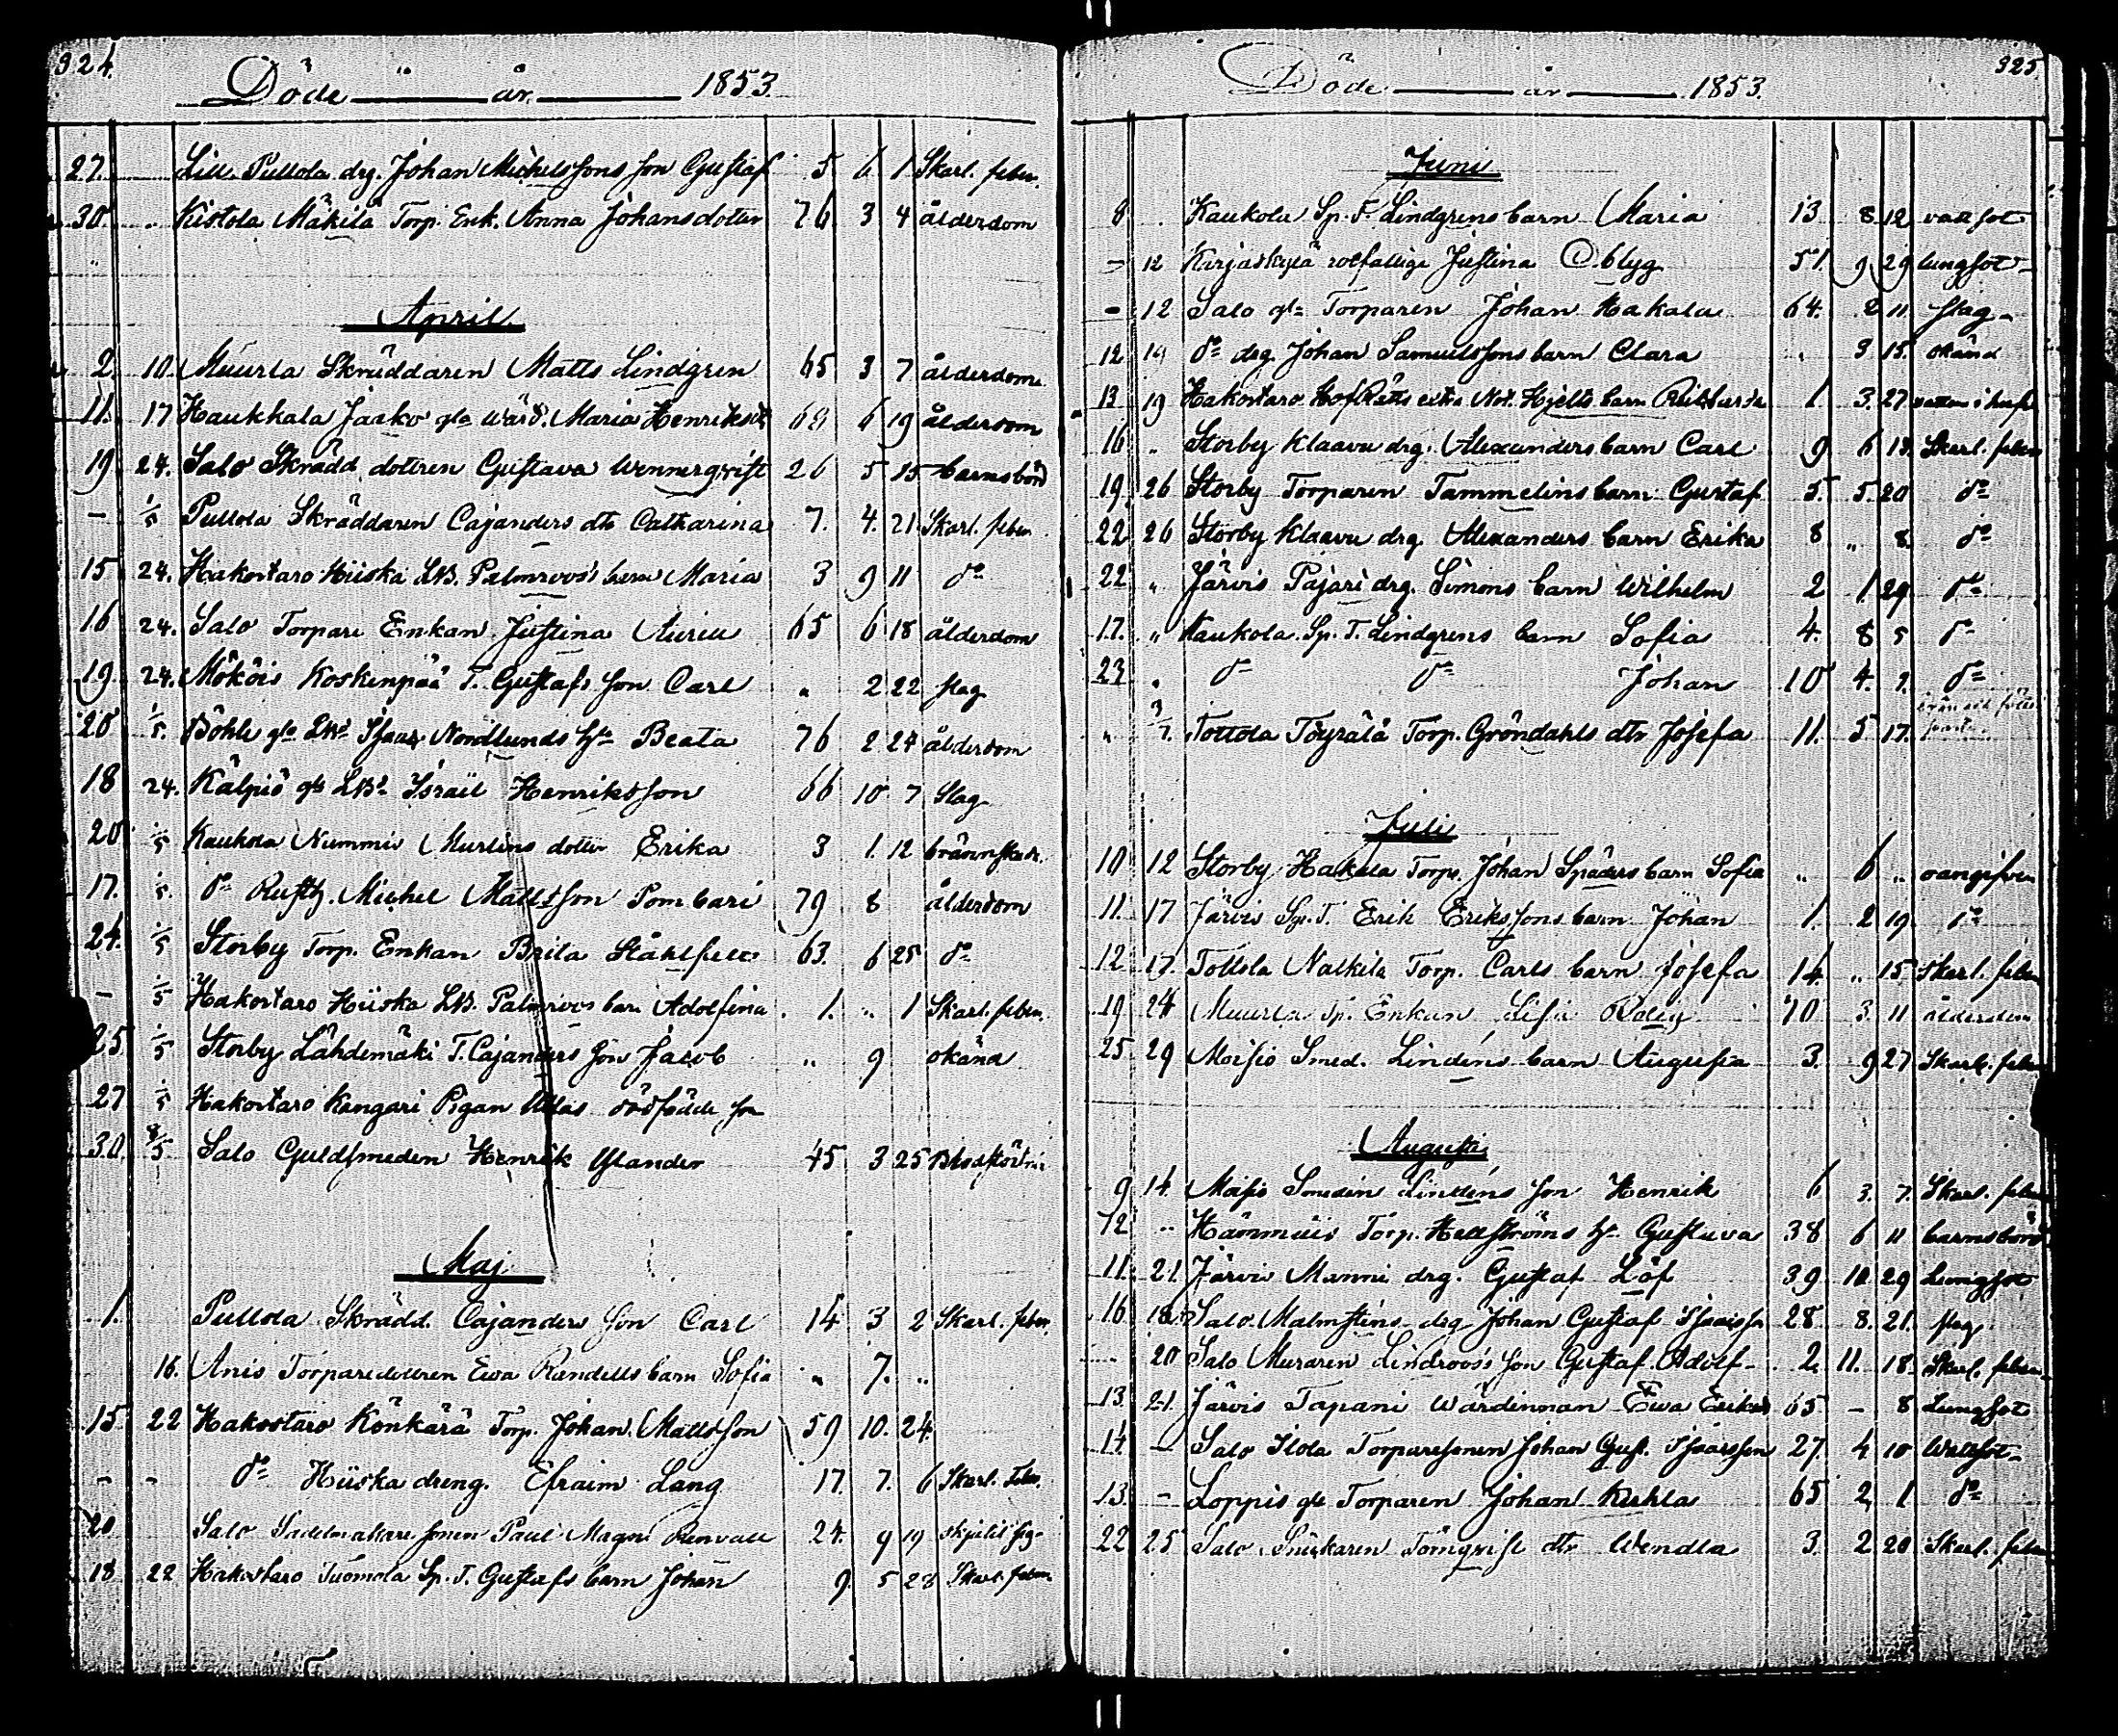 324.
Döde år 1853.
27. Lill Pullola drg. Johan Michelssons son Gustaf 5 6 1 Skarl. feber.
30. " Kistola Mäkilä Torp. Enk. Anna Johansdotter 76 3 4 ålderdom
April.
2. 10. Muurla Skräddaren Matts Lindgren 65 3 7 ålderdom
11. 17 Haukkala Jaako gla Wärd. Maria Henriksdr 6 19 ålderdom
19 24. Salo Skrädd. dottren Gustava Wennerqvist 26 5 15 barnsbörd
– 1/5 Pullola Skräddaren Cajanders dtr Catharina 7. 4. 21 Skarl. feber
15 24. Hakostaro Hiiska LB. Palmroos's barn Maria 3 9 11 do
16 24. Salo Torpare Enkan Justina Auria 65 6 18 ålderdom
19. 24. Mököis Koskenpää T. Gustafs son Carl " 2 22 slag
20 1/5. Böhle gla LBd Isaac Nordlunds hu Beata 76 2 24 ålderdom
18 24. Kälpiö gle LBd Israil Henriksson 66 10 7 Slag
20 1/5 Kaukola Nummis Murtins dotter Erika 3 1. 12 brännskad.
17. 1/5. do Rusth. Michel Mattsson Pombari 79 8 ålderdom
24. 1/5 Storby Torp. Enkan Brita Ståhlfelt 63. 6 25 do
– 1/5 Hakostaro Hiiska LB. Palmroos bar. Adolfina 1. " 1 Skarl. feber.
25 1/5 Storby Lähdemäki T. Cajanders son Jacob " 9 okänd
27 1/5 Hakostaro Kangari Pigan Ullas dödfödde son
30. 8/5 Salo Guldsmeden Henrik Ylander 45 3 25
Maj
1. Pullola Skrädd. Cajanders son Carl 14 3 2 Skarl. feber.
16. Anis Torparedottren Ewa Randells barn Sofia " 7. "
15 22 Hakostaro Könkärä Torp. Johan Mattsson 59 10. 24.
– – do Hiiska dreng. Efraim Lang 17. 7. 6 Skarl. Feber.
20 Salo Sadelmakare sonen Paul Magn. Renvall 24. 9 19
18 22 Hakostaro Tuomola Sp. T. Gustafs barn Johan 9. 5 28 Skarl. feber
325.
Döde år 1853.
Juni
8 Kaukola Sp. T. Lindgrens barn Maria 13 8 12 vattsot
– 12 Karjaskylä rotfattige Justina Oblyg 51. 9 29 lungsot
– 12 Salo gle Torparen Johan Hakala 64. 2 11 slag
12 19 do drg. Johan Samuelssons barn Clara " 3 15. okänd
13 19 Hakostaro HofRätts extra Not. Hjelts barn 1. 3. 27
16 " Storby Klaavu drg. Alexanders barn Carl 9 6 13. Skarl. feber
19. 26 Storby Torparen Tammelins barn Gustaf 5. 5. 20 do
22 26 Storby Klaavu drg. Alexanders barn Erika 8 " 8. do
22 " Järvis Pajari drg. Simons barn Wilhelm 2 1. 29. do
17. " Kaukola Sp. T. Lindgrens barn Sofia 4. 8 5 do
23 " do do Johan 10 4. 1. do
" 3/7. Tottola Töyrälä Torp. Gröndahls dtr Josefa 11. 5 17.
Juli
10 12 Storby Hakala Torp. Johan Spaders barn Sofia " 6 " oangifven
11. 17 Järvis Sp. T. Erik Erikssons barn Johan 1. 2 19 do
12 17. Tottola Nalkila Torp. Carls barn Josefa 14. " 15 Skarl. feber
19 24 Muurla Sp. Enkan Lisa 70 3. 11 ålderdom
25 29 Moisio Smed. Lindéns barn Augusta 3. 9 27 Skarl. feber
Augusti
9 14. Moisio Smeden Lindéns son Henrik 6 3. 7. Skarl. feber
12 " Torp. Hellströms h. Gustava 38 6 11 barnsbörd
11. 21. Järvis Manni drg. Gustaf Löf 39 10 29 Lungsot
16 18. Salo Malmsténs drg. Johan Gustaf Isaacss. 28 8. 21. slag
20 Salo Muraren Lindroos's son Gustaf Adolf 2. 11. 18 Skarl. feber
13. 21. Järvis Tapani Wärdinnan Ewa Eriksd. 65 – 8 Lungsot
14. – Salo Ilola Torparesonen Johan Gust. Isaacsson 27. 4 10 Wattsot
13. – Loppis gle Torparen Johan Kukla 65 2 1 do
22 25 Salo Snickaren Törnqvist dtr Wendla 3. 2 20 Skarl. feber